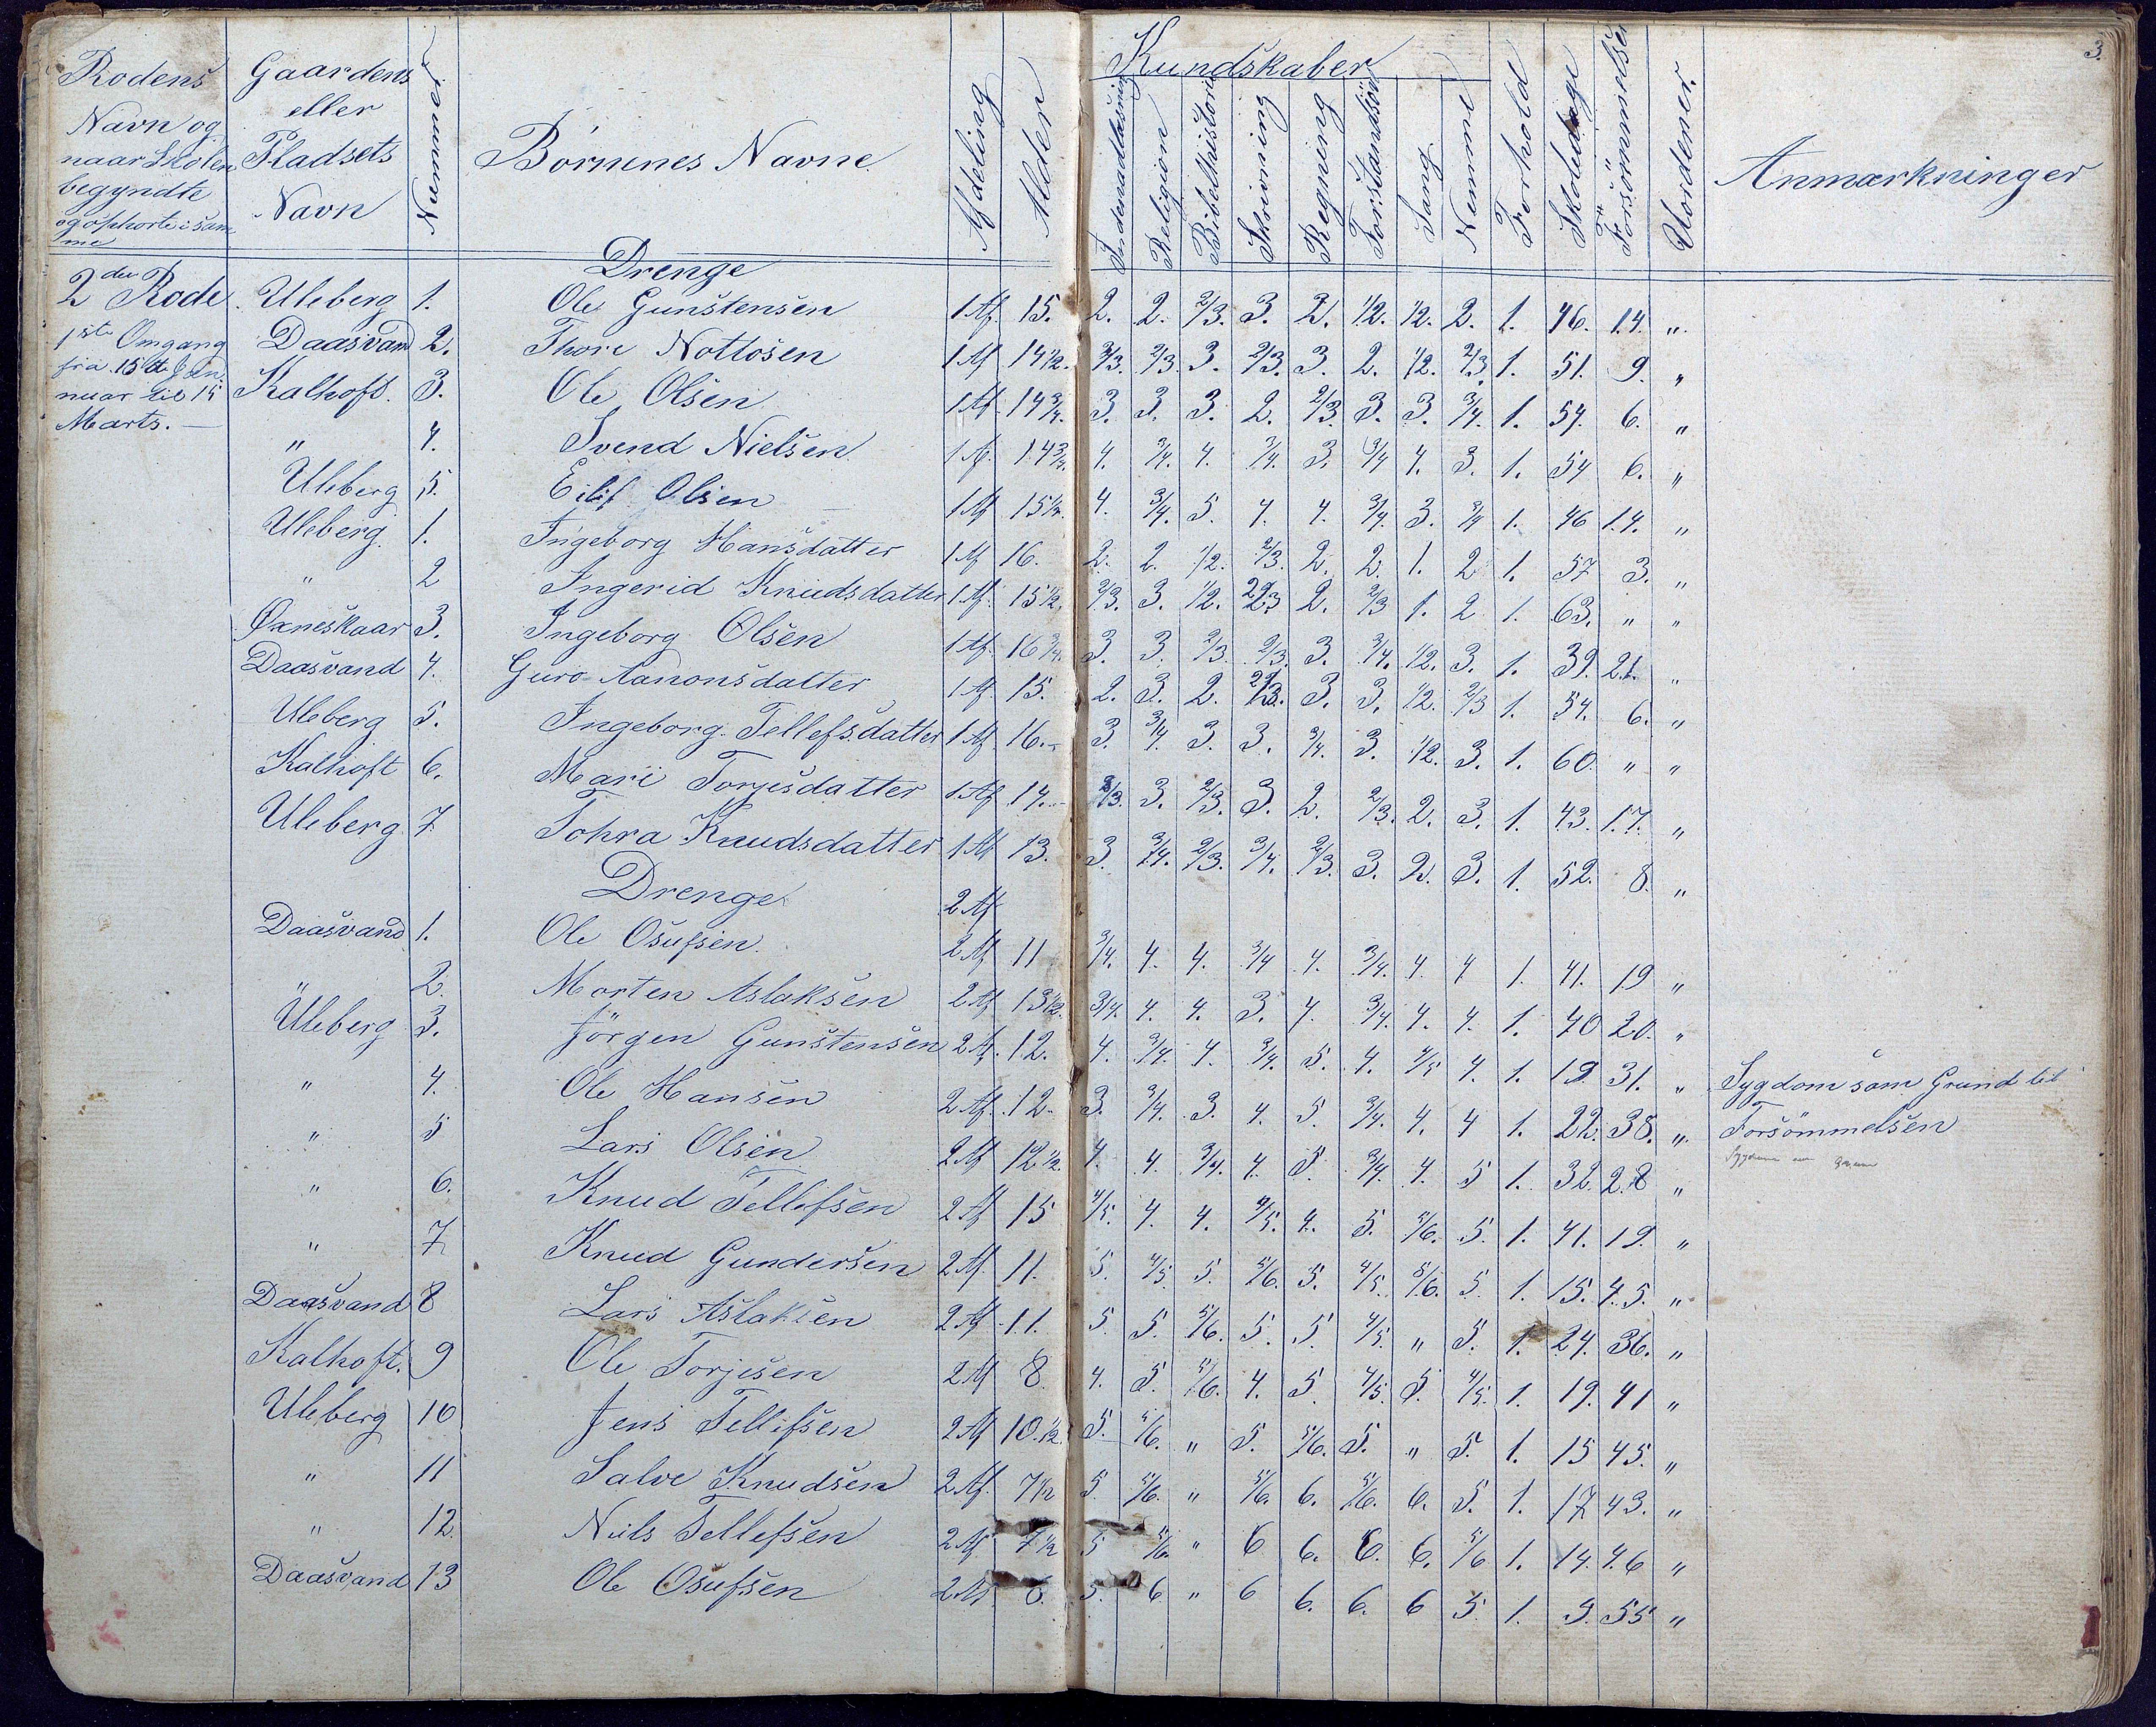 3.
Rodens Navn og naar Skolen begyndte og ophorte i samme
Gaardens eller Pladsets Navn
Nummer
Börnenes Navne
Afdeling
Alder
Kundskaber
Religion
Bibelhistorie
Skrivning
Regning
Sang
Nemme
Forhold
Skoledage
Forsömmelser
Anmærkninger
Drenge
2den Rode Uleberg 1. Ole Gunstensen 1 Af. 15. 2. 2. 2/3. 3. 2. 1/2. 1/2. 2. 1. 46. 14. "
1ste Omgang Daasvand 2. Thore Nottosen 1 Af 14 1/2. 2/3. 2/3. 3. 2/3. 3. 2. 1/2. 2/3. 1. 51. 9. "
fra 15de Jan- Kalhoft. 3. Ole Olsen 1 Af. 14 3/4. 3. 3. 3. 2. 2/3. 3. 3. 3/4. 1. 54. 6. "
nuar til 15 Marts. " 4. Svend Nielsen 1 Af. 14 3/4. 4. 3/4. 4. 3/4. 3. 3/4 4. 3. 1. 54 6. "
Uleberg 5. Eilif Olsen 1 Af 15 1/2. 4. 3/4. 5. 4. 4. 3/4. 3. 3/4 1. 46 14. "
Uleberg 1. Ingeborg Hansdatter 1 Af 16. 2. 2. 1/2. 2/3. 2. 2. 1. 2 1. 57 3. "
" 2 Ingerid Knudsdatter 1 Af. 15 1/2. 2/3. 3. 1/2. 2/3 2. 2/3 1. 2 1. 63. " "
Øxneskaar 3. Ingeborg Olsen 1 Af. 16 3/4. 3. 3. 2/3. 2/3. 3. 3/4. 1/2. 3. 1. 39. 21. "
Daasvand 4. Guro Aanonsdatter 1 Af. 15. 2. 3. 2. 2/3. 3. 3. 1/2. 2/3 1. 54. 6. "
Uleberg 5. Ingeborg Tellefsdatter 1 Af 16. 3. 3/4. 3. 3. 3/4. 3. 1/2. 3. 1. 60. " "
Kalhoft 6. Mari Torjesdatter 1 Af 14. 2/3. 3. 2/3. 3. 2. 2/3. 2. 3. 1. 43. 17. "
Uleberg 7 Tohra Knudsdatter 1 Af 13. 3. 3/4. 2/3. 3/4. 2/3. 3. 2. 3. 1. 52. 8. "
Drenge 2 Af
Daasvand 1. Ole Osufsen 2 Af 11 3/4. 4. 4. 3/4 4. 3/4. 4. 4 1. 41. 19 "
" 2. Morten Aslaksen 2 Af 13 1/2. 3/4. 4. 4. 3. 4. 3/4. 4. 4. 1. 40 20. "
Uleberg 3. Jörgen Gunstensen 2 Af. 12. 4. 3/4. 4. 3/4. 5. 4. 4/5 4. 1. 19 31. " Sygdom som Grund til
" 4. Ole Hansen 2 Af. 12. 3. 3/4. 3. 4. 5. 3/4. 4. 4 1. 22. 38. " Forsömmelsen
" 5 Lars Olsen 2 Af 12 1/2 4. 4. 3/4. 4. 5. 3/4. 4. 5 1. 32. 28 "
" 6. Knud Tellefsen 2 Af 15 4/5. 4. 4. 4/5. 4. 5. 5/6. 5. 1. 41. 19. "
" 7 Knud Gundersen 2 Af. 11. 5. 4/5 5. 5/6. 5. 4/5. 5/6. 5. 1. 15. 45. "
Daasvand 8 Lars Aslaksen 2 Af 11. 5. 5. 5/6. 5. 5. 4/5. " 5. 1. 24. 36. "
Kalhoft. 9 Ole Torjesen 2 Af 8. 4. 5. 5/6. 4. 5. 4/5. 5. 4/5. 1. 19. 41 "
Uleberg 10 Jens Tellefsen 2 Af 10 1/2. 5. 5/6. " 5. 5/6. 5. " 5. 1. 15 45. "
" 11 Salve Knudsen 2 Af. 7 1/2 5. 5/6. " 5/6. 6. 5/6. 6. 5. 1. 17 43. "
" 12. Niels Tellefsen 2 Af 7 1/2 5 5/6. " 6 6. 6. 6. 5/6 1. 14. 46 "
Daasvand 13 Ole Osufsen 2 Af 6. 5. 6 " 6 6. 6. 6 5. 1. 5. 55 "